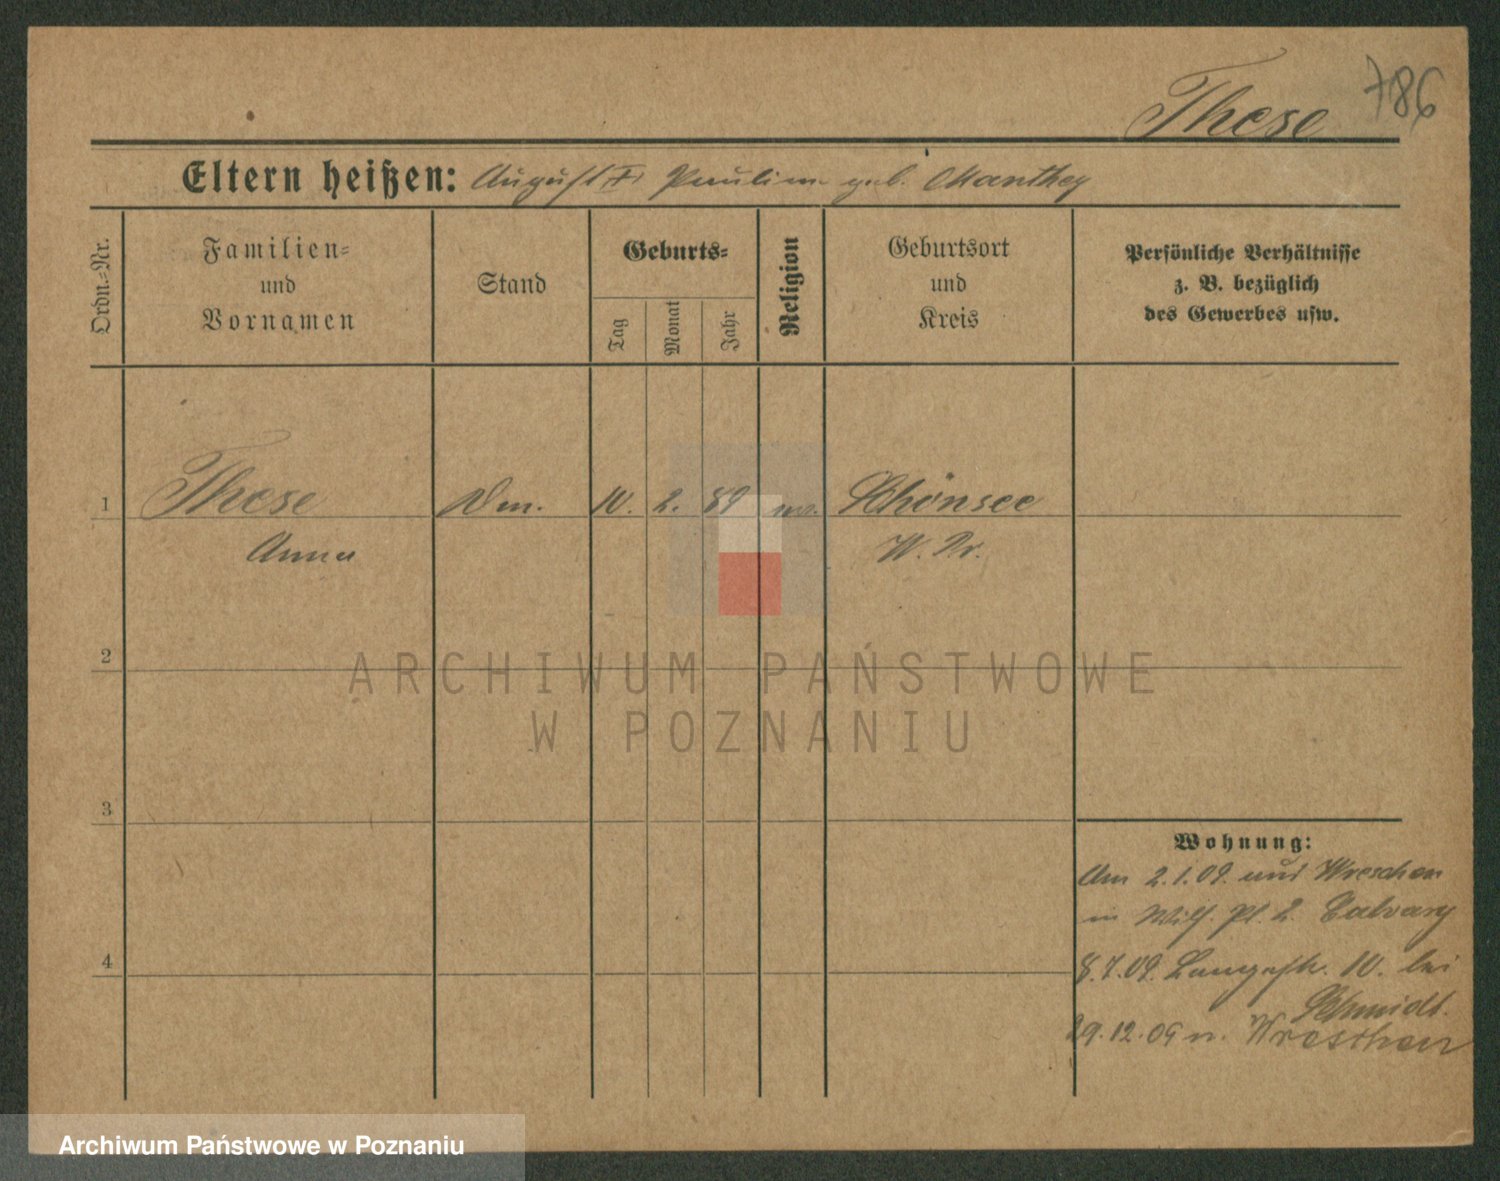 These 786
Eltern heißen: August & Pauline geb. Manthey
Ordn.-Nr.
Familien- und Vornamen
Stand
Geburts-
Tag
Monat
Jahr
Religion
Geburtsort und Kreis
Persönliche Verhältnisse
z. B. bezüglich
des Gewerbes usw.
1 These Dm. 10. 2. 89 Schönsee
Anna W. Pr.
2
3
4
Wohnung:
Am 2.1.09. aus Wreschen
in Wilh. Pl. 2. Calvary
8.7.09. Langestr. 10. bei
Schmidt.
29.12.09 n. Wreschen
ARCHIWUM PAŃSTWOWE
W POZNANIU
Archiwum Państwowe w Poznaniu